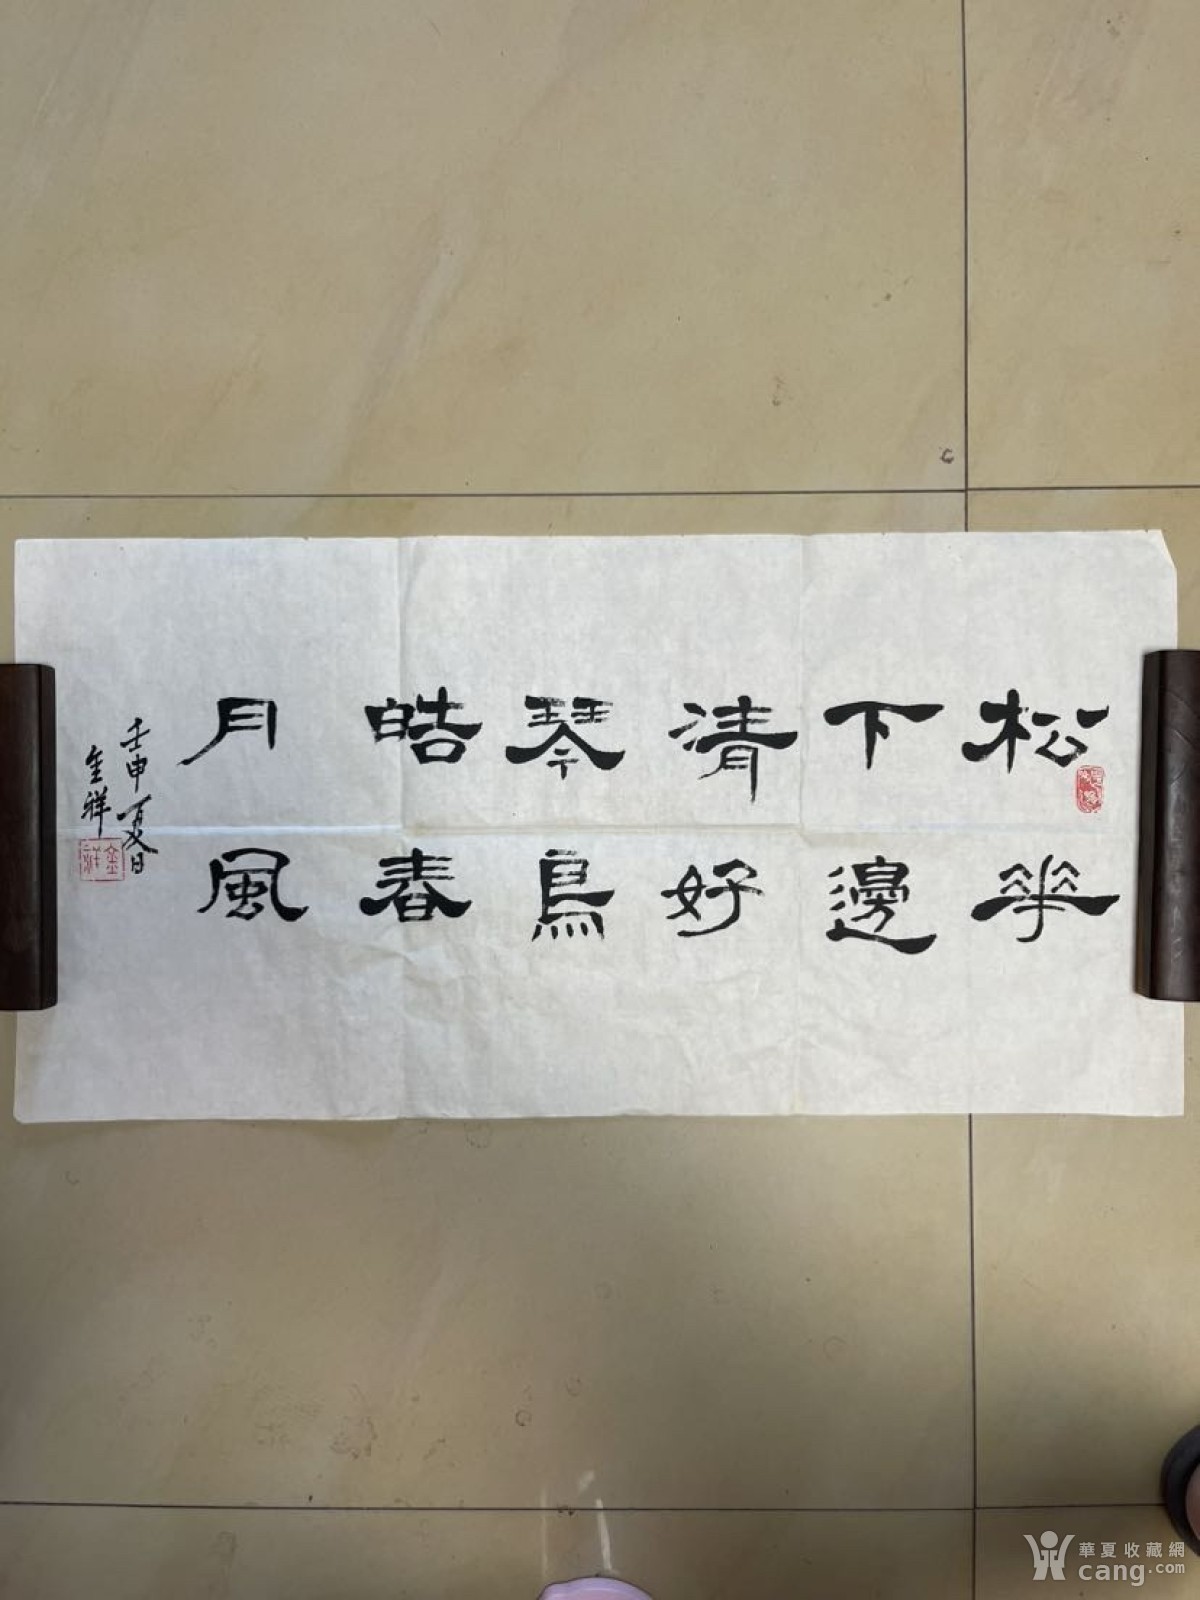 松下清琴皓月
華邊好鳥春風
壬申夏日
金祥
金祥
華夏收藏網
cang.com